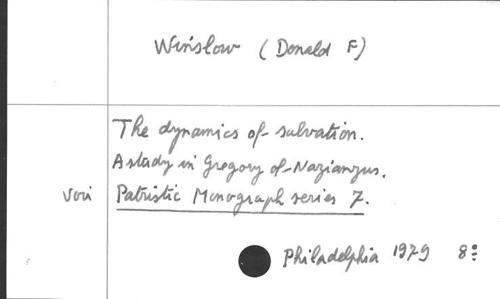 Winslow (Donald F)
The dynamics of salvation.
A study in Gregory of Nazianzus.
voir Patristic Monograph series 7.
Philadelphia 1979 8º